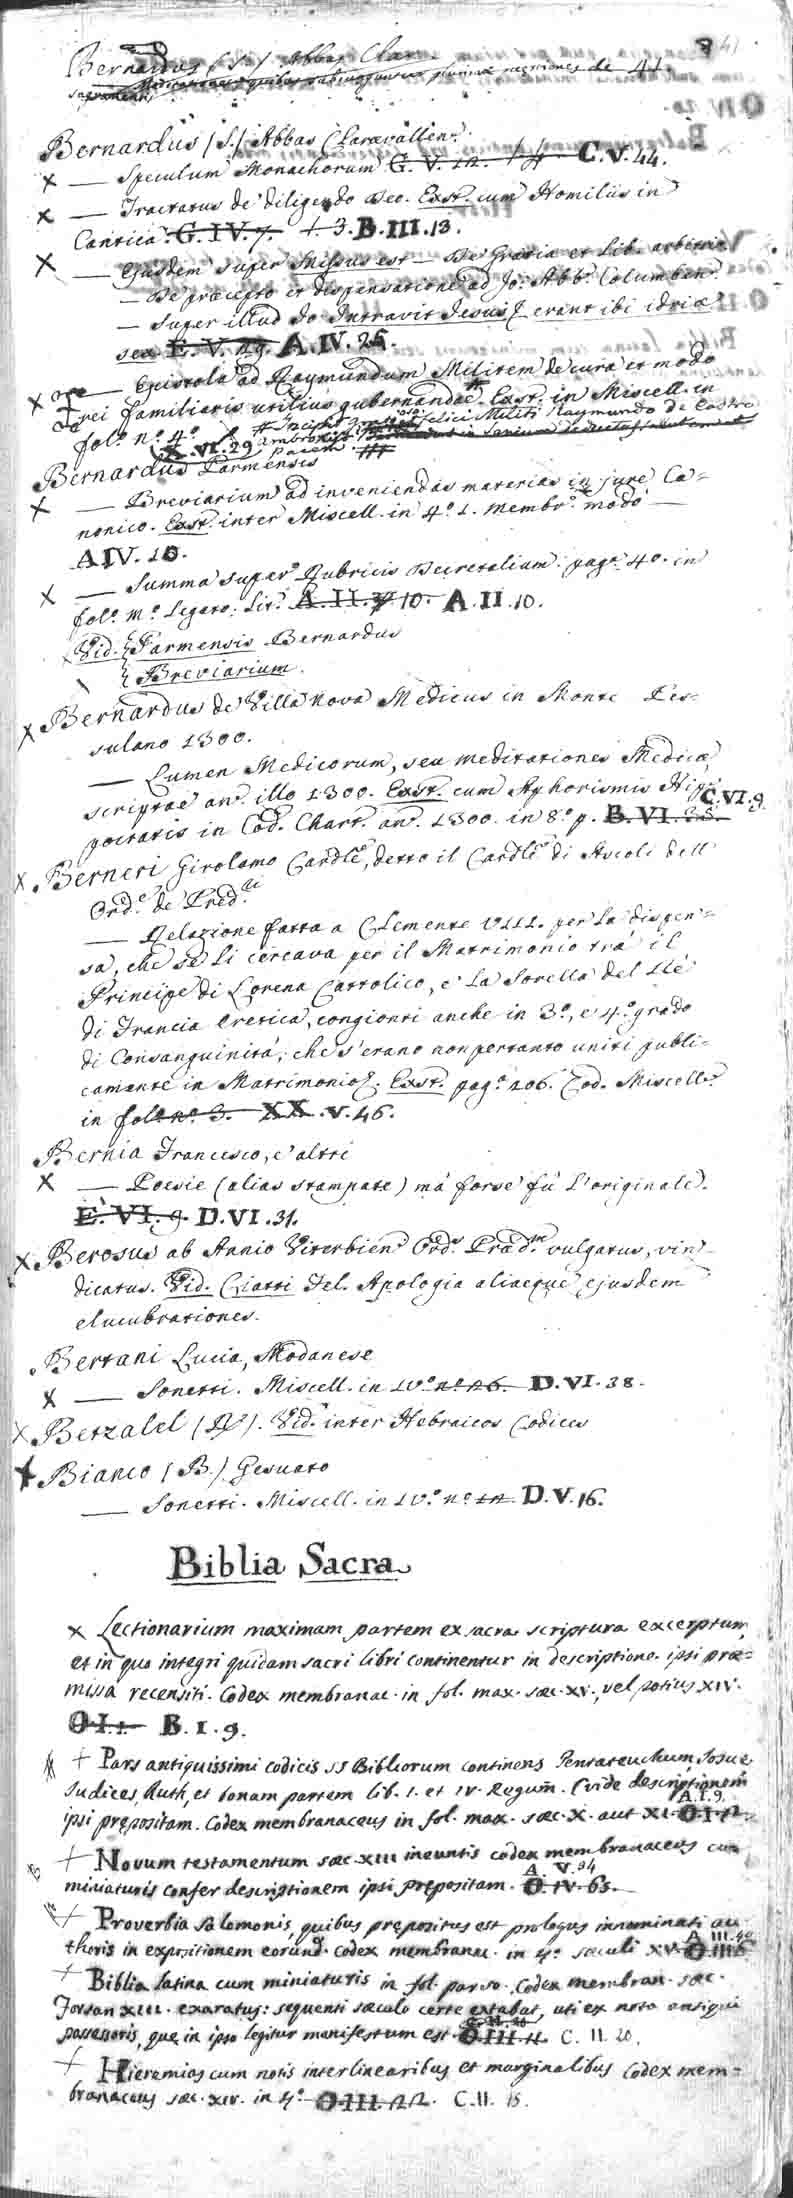 41
Bernardus (S.) Abbas Clar
sacramentis quibus subiunguntur plurimae narrationes de
Bernardus (S.) Abbas Claravallen.
x — Speculum Monachorum G. V. 12. C.V. 44.
x — Tractatus de diligendo Deo. Exst. cum Homiliis in
Cantica. G. IV. 7. B.III.13.
x — Ejusdem super Missus est — De Gratia et Lib. arbitrio
— De praecepto et dispensatione ad Jo: Abb. Columben.
— super illud Jo Intravit Jesus, erant ibi idriae
sex E. V. 29. A.IV.25.
x — Epistola ad Raymundum Militem de cura et modo
rei familiaris utilius gubernandae. Exst. in Miscell. in
fol. nº 4º X.VI.29 # Incipit felici Militi Raymundo de Castro
Ambrosio
Bernardus Parmensis
x — Breviarium ad inveniendas materias in jure Ca-
nonico. Exst. inter Miscell. in 4º 1. membr. modò —
A IV. 10.
x — Summa super Rubricis Decretalium. pag. 40. in
fol. m.º legato. Lit. A. II. 10. A.II.10.
Vid. { Parmensis Bernardus
{ Breviarium.
x Bernardus de Villa Nova Medicus in Monte Pes-
sulano 1300.
— Lumen Medicorum, seu meditationes Medicae,
scriptae an. illo 1300. Exst. cum Aphorismis Hip-
pocratis in Cod. Chart. an. 1300. in 8º p. B.VI. 25. C.VI.9
x Berneri Girolamo Cardle, detto il Cardle di Ascoli dell'
Ord.e de' Pred.ri
— Relazione fatta a Clemente VIII. per la dispen-
sa, che se li cercava per il Matrimonio trà il
Principe di Lorena Cattolico, e la Sorella del Rè
di Francia Eretica, congionti anche in 3º, e 4º grado
di Consanguinità, che s'erano nonpertanto uniti publi-
camente in Matrimonio. Exst. pag. 206. Cod. Miscell.
in fol. nº 3. XX.V.46.
Bernia Francesco, e altri
x — Poesie (alias stampate) mà forse fù l'originale.
E. VI. 9. D.VI.31.
x Berosus ab Annio Viterbien Ord. Praed. vulgatus, vin-
dicatus. Vid. Ciatti Fel. Apologia aliaeque ejusdem
elucubrationes.
Bertani Lucia, Modanese
x — Sonetti. Miscell. in IV.º nº 26. D.VI.38.
x Betzalel (R.). Vid. inter Hebraicos Codices
x Bianco (B.) Gesuato
— Sonetti. Miscell. in IV.º nº 12 D.V.16.
Biblia Sacra
x Lectionarium maximam partem ex sacra scriptura excerptum,
et in quo integri quidam sacri libri continentur in descriptione ipsi prae-
missa recensiti. Codex membranac. in fol. max. saec. XV., vel potius XIV.
O.I.1. B.I.9.
+ Pars antiquissimi codicis SS Bibliorum continens Pentateuchum, Josue,
Judices, Ruth, et bonam partem lib. I. et IV. Regum. (vide descriptionem
ipsi prepositam. Codex membranaceus in fol. max. saec. X. aut XI. O.I.12. A.I.9.
+ Novum testamentum saec XIII ineuntis codex membranaceus cum
miniaturis confer descriptionem ipsi prepositam. O.IV.65. A.V.34
+ Proverbia Salomonis, quibus prepositus est prologus innominati au-
thoris in expositionem eorund. codex membranac. in 4º saeculi XV. O.III.6 A III.40
+ Biblia latina cum miniaturis in fol. parvo. Codex membran. saec.
forsan XIII. exaratus: sequenti saeculo certe extabat, uti ex nota antiqui
possessoris, que in ipso legitur manifestum est. O.III.11. C.II.20.
+ Hieremias cum notis interlinearibus et marginalibus Codex mem-
branaceus saec. XIV. in 4º O.III.22. C.II.15.